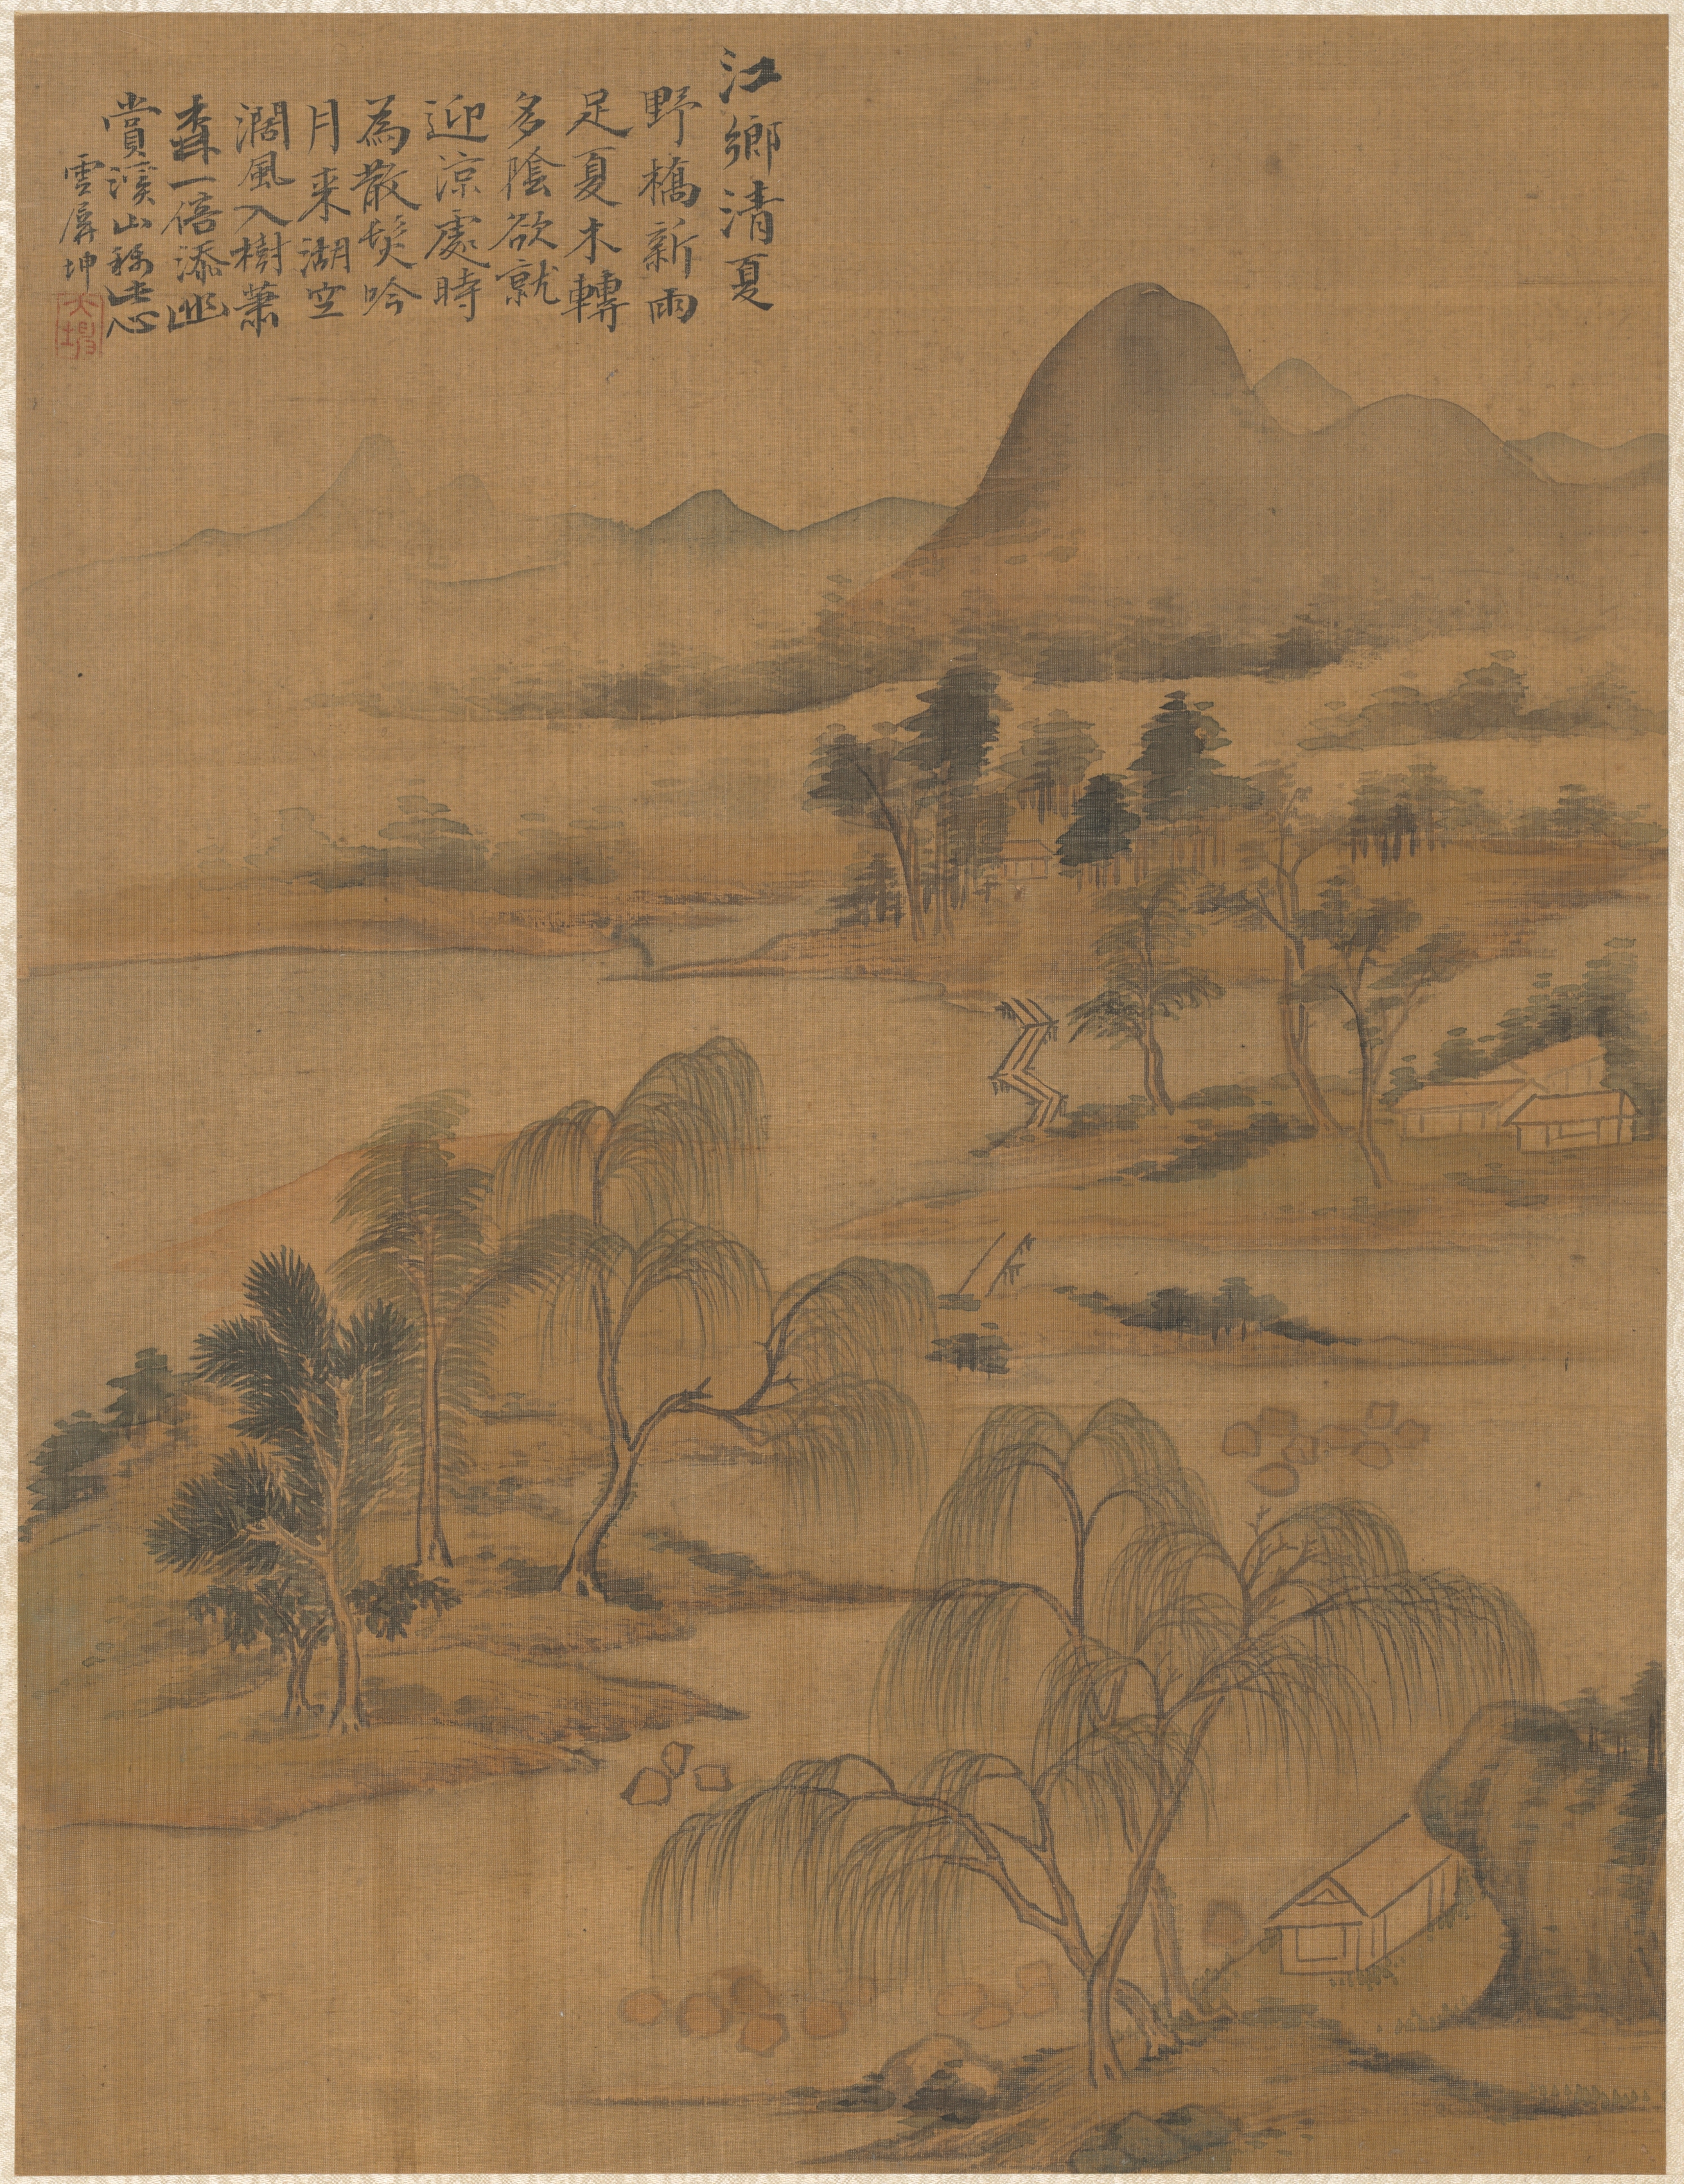 江鄉清夏
野橋新雨
足夏木轉
多陰欲就
迎涼處時
為散髮吟
月来湖空
濶風入樹蕭
森一倍添幽
賞溪山稱
雲屏坤